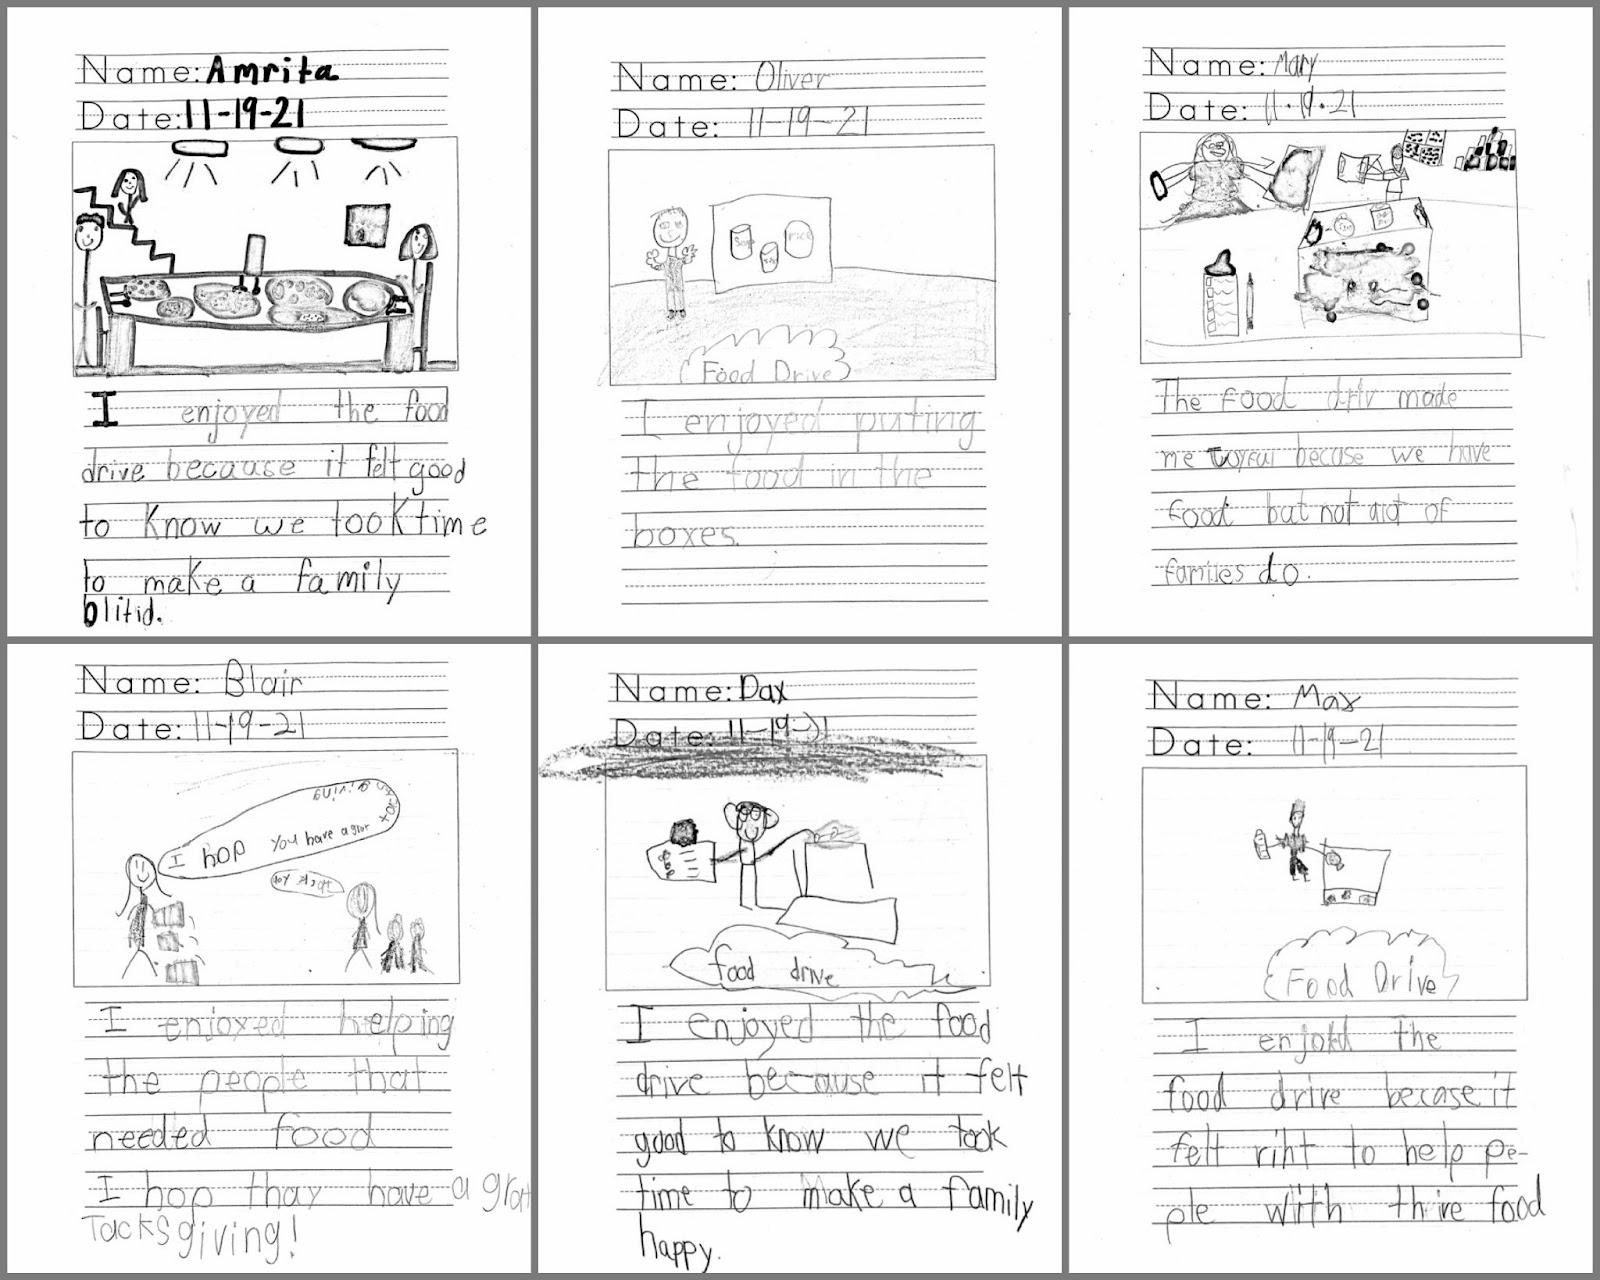 Name: Amrita
Date: 11-19-21
I enjoyed the food
drive because it felt good
to know we took time
to make a family
blitid.
Name: Oliver
Date: 11-19-21
Soup
rice
Food Drive
I enjoyed puting
the food in the
boxes.
Name: Mary
Date: 11.19.21
The food driv made
me joyful becase we have
food but not alot of
familes do.
Name: Blair
Date: 11-19-21
I hop you have a grat
giving
I enjoyed helping
the people that
needed food
I hop thay have a grat
Tacksgiving!
Name: Dax
Date: 11-19-21
food drive
I enjoyed the food
drive because it felt
good to know we took
time to make a family
happy.
Name: Max
Date: 11-19-21
Food Drive
I enjoyd the
food drive becase it
felt riht to help pe-
ple wiith thire food